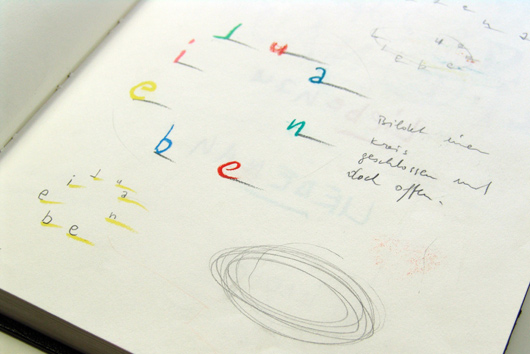 l i e b e n a u
Bildet einen
Kreis
geschlossen und
doch offen.
l i e b e n a u